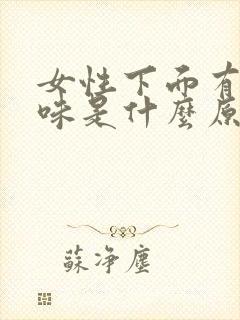 女性下面有
味是什麼原
蘇淨塵